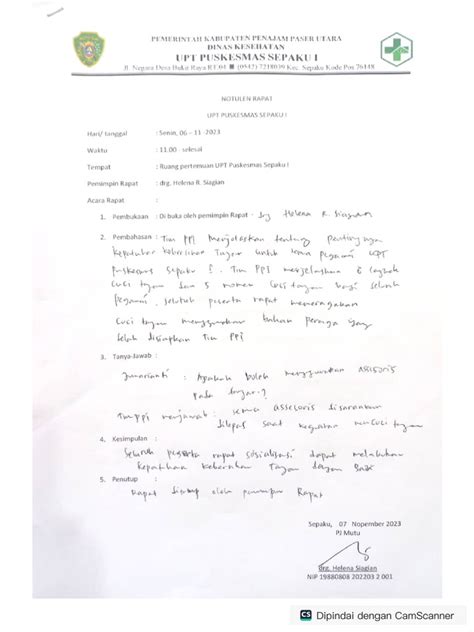 PEMERINTAH KABUPATEN PENAJAM PASER UTARA
DINAS KESEHATAN
UPT PUSKESMAS SEPAKU I
Jl. Negara Desa Buku Raya RT.04 (0542) 7218039 Kec. Sepaku Kode Pos 76148
NOTULEN RAPAT
UPT PUSKESMAS SEPAKU I
Hari/ tanggal : Senin, 06 – 11 -2023
Waktu : 11.00 - selesai
Tempat : Ruang pertemuan UPT Puskesmas Sepaku I
Pemimpin Rapat : drg. Helena R. Siagian
Acara Rapat :
1. Pembukaan : Di buka oleh pemimpin Rapat - drg Helena R. Siagian
2. Pembahasan : Tim PPI menjelaskan tentang pentingnya
kepatuhan kebersihan Tangan untuk semua pegawai UPT
puskesmas sepaku I. Tim PPI menjelaskan 6 langkah
cuci tangan dan 5 momen cuci tangan bagi seluruh
pegawai, seluruh peserta rapat memeragakan
cuci tangan menggunakan bahan peraga yang
telah disiapkan Tim PPI
3. Tanya-Jawab :
: Apakah boleh menggunakan assesoris
pada tangan?
Tim PPI menjawab : semua assesoris disarankan
dilepas saat kegiatan mencuci tangan
4. Kesimpulan :
Seluruh peserta rapat sosialisasi dapat melakukan
kepatuhan kebersihan Tangan dengan Baik
5. Penutup :
Rapat ditutup oleh pemimpin Rapat
Sepaku, 07 Nopember 2023
PJ Mutu
drg. Helena Siagian
NIP 19880808 202203 2 001
CS Dipindai dengan CamScanner